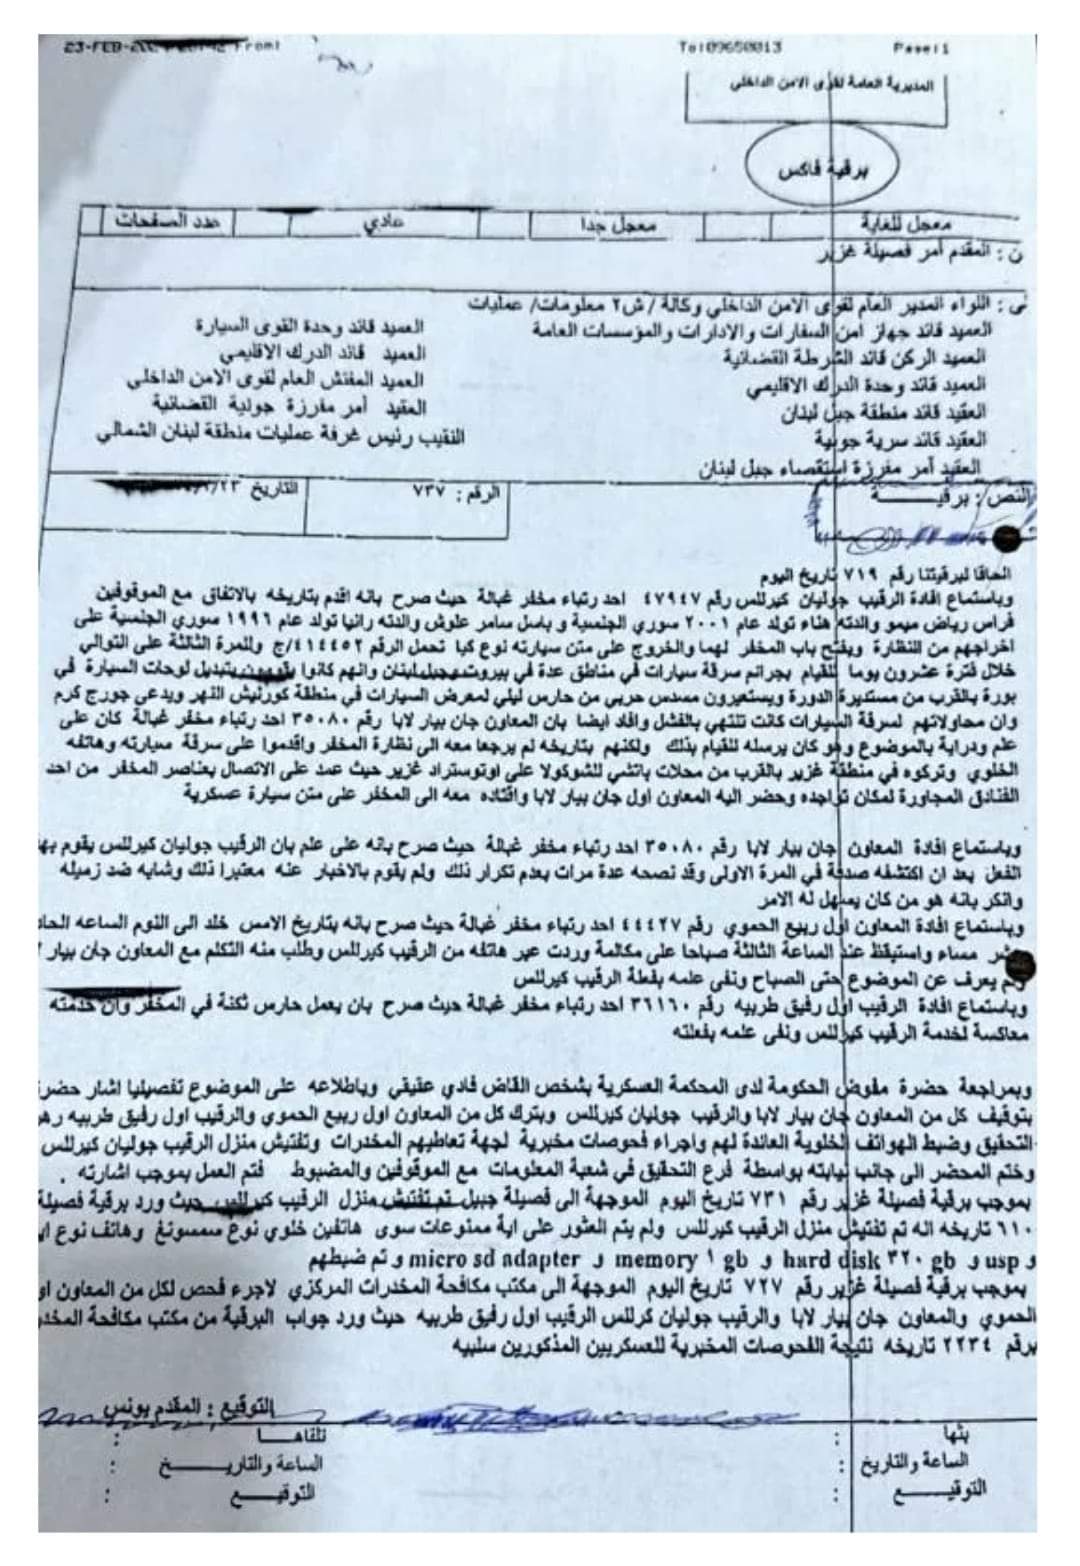 23-FEB- From:
To:09650013 Page:1
المديرية العامة لقوى الامن الداخلي
برقية فاكس
معجل للغاية معجل جدا عادي عدد الصفحات
ن : المقدم أمر فصيلة غزير
: اللواء المدير العام لقوى الامن الداخلي وكالة / ش٢ معلومات/ عمليات
العميد قائد جهاز امن السفارات والادارات والمؤسسات العامة العميد قائد وحدة القوى السيارة
العميد الركن قائد الشرطة القضائية العميد قائد الدرك الاقليمي
العميد قائد وحدة الدرك الاقليمي العميد المفتش العام لقوى الامن الداخلي
العقيد قائد منطقة جبل لبنان العقيد أمر مفرزة جولية القضائية
العقيد قائد سرية جونية النقيب رئيس غرفة عمليات منطقة لبنان الشمالي
العقيد أمر مفرزة استقصاء جبل لبنان
النص : برقيـــــة الرقم : ٧٣٧ التاريخ ٢/٢٣
الحاقا لبرقيتنا رقم ٧١٩ تاريخ اليوم
وباستماع افادة الرقيب جوليان كيرللس رقم ٤٧٩٤٧ احد رتباء مخفر غبالة حيث صرح بانه اقدم بتاريخه بالاتفاق مع الموقوفين
فراس رياض ميمو والدته هناء تولد عام ٢٠٠١ سوري الجنسية و باسل سامر علوش والدته رانيا تولد عام ١٩٩٦ سوري الجنسية على
اخراجهم من النظارة وبفتح باب المخفر لهما والخروج على متن سيارته نوع كيا تحمل الرقم ٤١٤٤٥٢/ج وللمرة الثالثة على التوالي
خلال فترة عشرون يوما للقيام بجرائم سرقة سيارات في مناطق عدة في بيروت وجبل لبنان وانهم كانوا يقومون بتبديل لوحات السيارة في
بورة بالقرب من مستديرة الدورة ويستعيرون مسدس حربي من حارس ليلي لمعرض السيارات في منطقة كورنيش النهر ويدعى جورج كرم
وان محاولاتهم لسرقة السيارات كانت تنتهي بالفشل وافاد ايضا بان المعاون جان بيار لابا رقم ٣٥٠٨٠ احد رتباء مخفر غبالة كان على
علم ودراية بالموضوع وهو كان يرسله للقيام بذلك ولكنهم بتاريخه لم يرجعا معه الى نظارة المخفر واقدموا على سرقة سيارته وهاتفه
الخلوي وتركوه في منطقة غزير بالقرب من محلات باتشي للشوكولا على اوتوستراد غزير حيث عمد على الاتصال بعناصر المخفر من احد
الفنادق المجاورة لمكان تواجده وحضر اليه المعاون اول جان بيار لابا واقتاده معه الى المخفر على متن سيارة عسكرية
وباستماع افادة المعاون جان بيار لابا رقم ٣٥٠٨٠ احد رتباء مخفر غبالة حيث صرح بانه على علم بان الرقيب جوليان كيرللس يقوم
الفعل بعد ان اكتشفه صدفة في المرة الاولى وقد نصحه عدة مرات بعدم تكرار ذلك ولم يقوم بالاخبار عنه معتبرا ذلك وشايه ضد زميله
وانكر بانه هو من كان يسهل له الامر
وباستماع افادة المعاون اول ربيع الحموي رقم ٤٤٤٢٧ احد رتباء مخفر غبالة حيث صرح بانه بتاريخ الامس خلد الى النوم الساعه
مساء واستيقظ عند الساعة الثالثة صباحا على مكالمة وردت عبر هاتفه من الرقيب كيرللس وطلب منه التكلم مع المعاون جان بيار
ولم يعرف عن الموضوع حتى الصباح ونفى علمه بفعلة الرقيب كيرللس
وباستماع افادة الرقيب اول رفيق طربيه رقم ٣٦١٦٠ احد رتباء مخفر غبالة حيث صرح بان يعمل حارس ثكنة في المخفر وان خدمته
معاكسة لخدمة الرقيب كيرللس ونفى علمه بفعلته
وبمراجعة حضرة مفوض الحكومة لدى المحكمة العسكرية بشخص القاض فادي عقيقي وباطلاعه على الموضوع تفصيليا اشار حضرة
بتوقيف كل من المعاون جان بيار لابا والرقيب جوليان كيرللس وبترك كل من المعاون اول ربيع الحموي والرقيب اول رفيق طربيه
التحقيق وضبط الهواتف الخلوية العائدة لهم واجراء فحوصات مخبرية لجهة تعاطيهم المخدرات وتفتيش منزل الرقيب جوليان كيرللس
وختم المحضر الى جانب نيابته بواسطة فرع التحقيق في شعبة المعلومات مع الموقوفين والمضبوط فتم العمل بموجب اشارته .
بموجب برقية فصيلة غزير رقم ٧٣١ تاريخ اليوم الموجهة الى فصيلة جبيل تم تفتيش منزل الرقيب كيرللس حيث ورد برقية فصيلة
٦١٠ تاريخه انه تم تفتيش منزل الرقيب كيرللس ولم يتم العثور على اية ممنوعات سوى هاتفين خلوي نوع سمسونغ وهاتف نوع
و usp و hard disk ٣٢٠ gb و memory ١ gb و micro sd adapter و تم ضبطهم
بموجب برقية فصيلة غزير رقم ٧٢٧ تاريخ اليوم الموجهة الى مكتب مكافحة المخدرات المركزي لاجرء فحص لكل من المعاون
الحموي والمعاون جان بيار لابا والرقيب جوليان كرللس الرقيب اول رفيق طربيه حيث ورد جواب البرقية من مكتب مكافحة
برقم ٢٢٣٤ تاريخه نتيجة الفحوصات المخبرية للعسكريين المذكورين سلبيه
التوقيع : المقدم يونس
بثها : تلقاهـــا :
الساعة والتاريخ : الساعة والتاريـــــخ :
التوقيـــــع : التوقيـــــع :